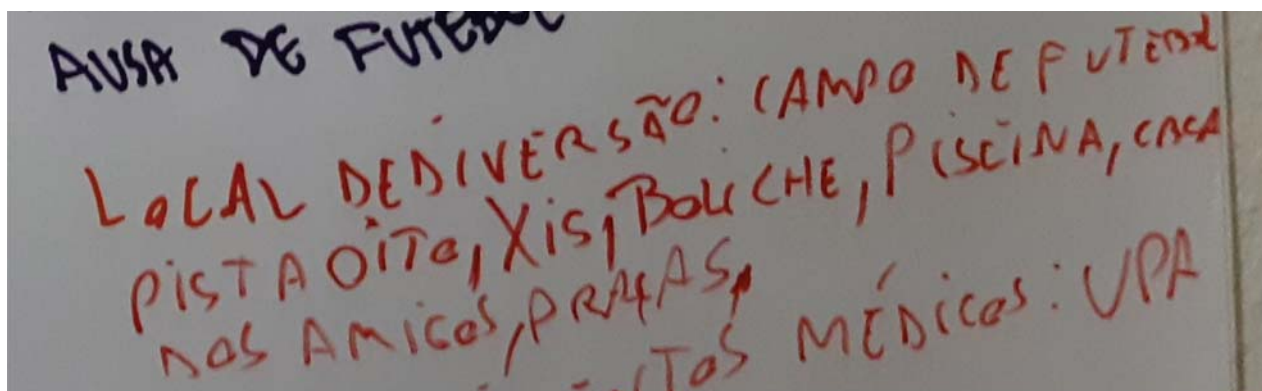 AUSA DE FUTEBOL
LOCAL DE DIVERSÃO: CAMPO DE FUTEBOL
PISTA OITO, XIS, BOLICHE, PISCINA, CASA
DOS AMIGOS, PRAÇAS,
MÉDICOS: UPA